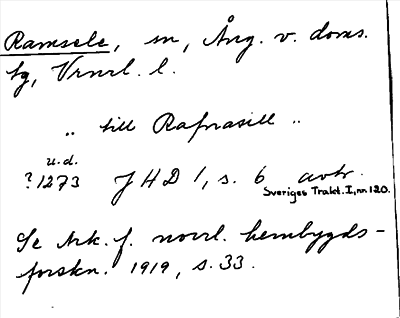 Ramsele, sn, Ång. v. doms.
sg, Vrnrl. l.
„ till Rafnasill „
u.d.
?1273 JHD 1, s. 6 avtr.
Sveriges Trakt. I, nr 120.
Se Ark. f. norrl. hembygds-
forskn. 1919, s. 33.